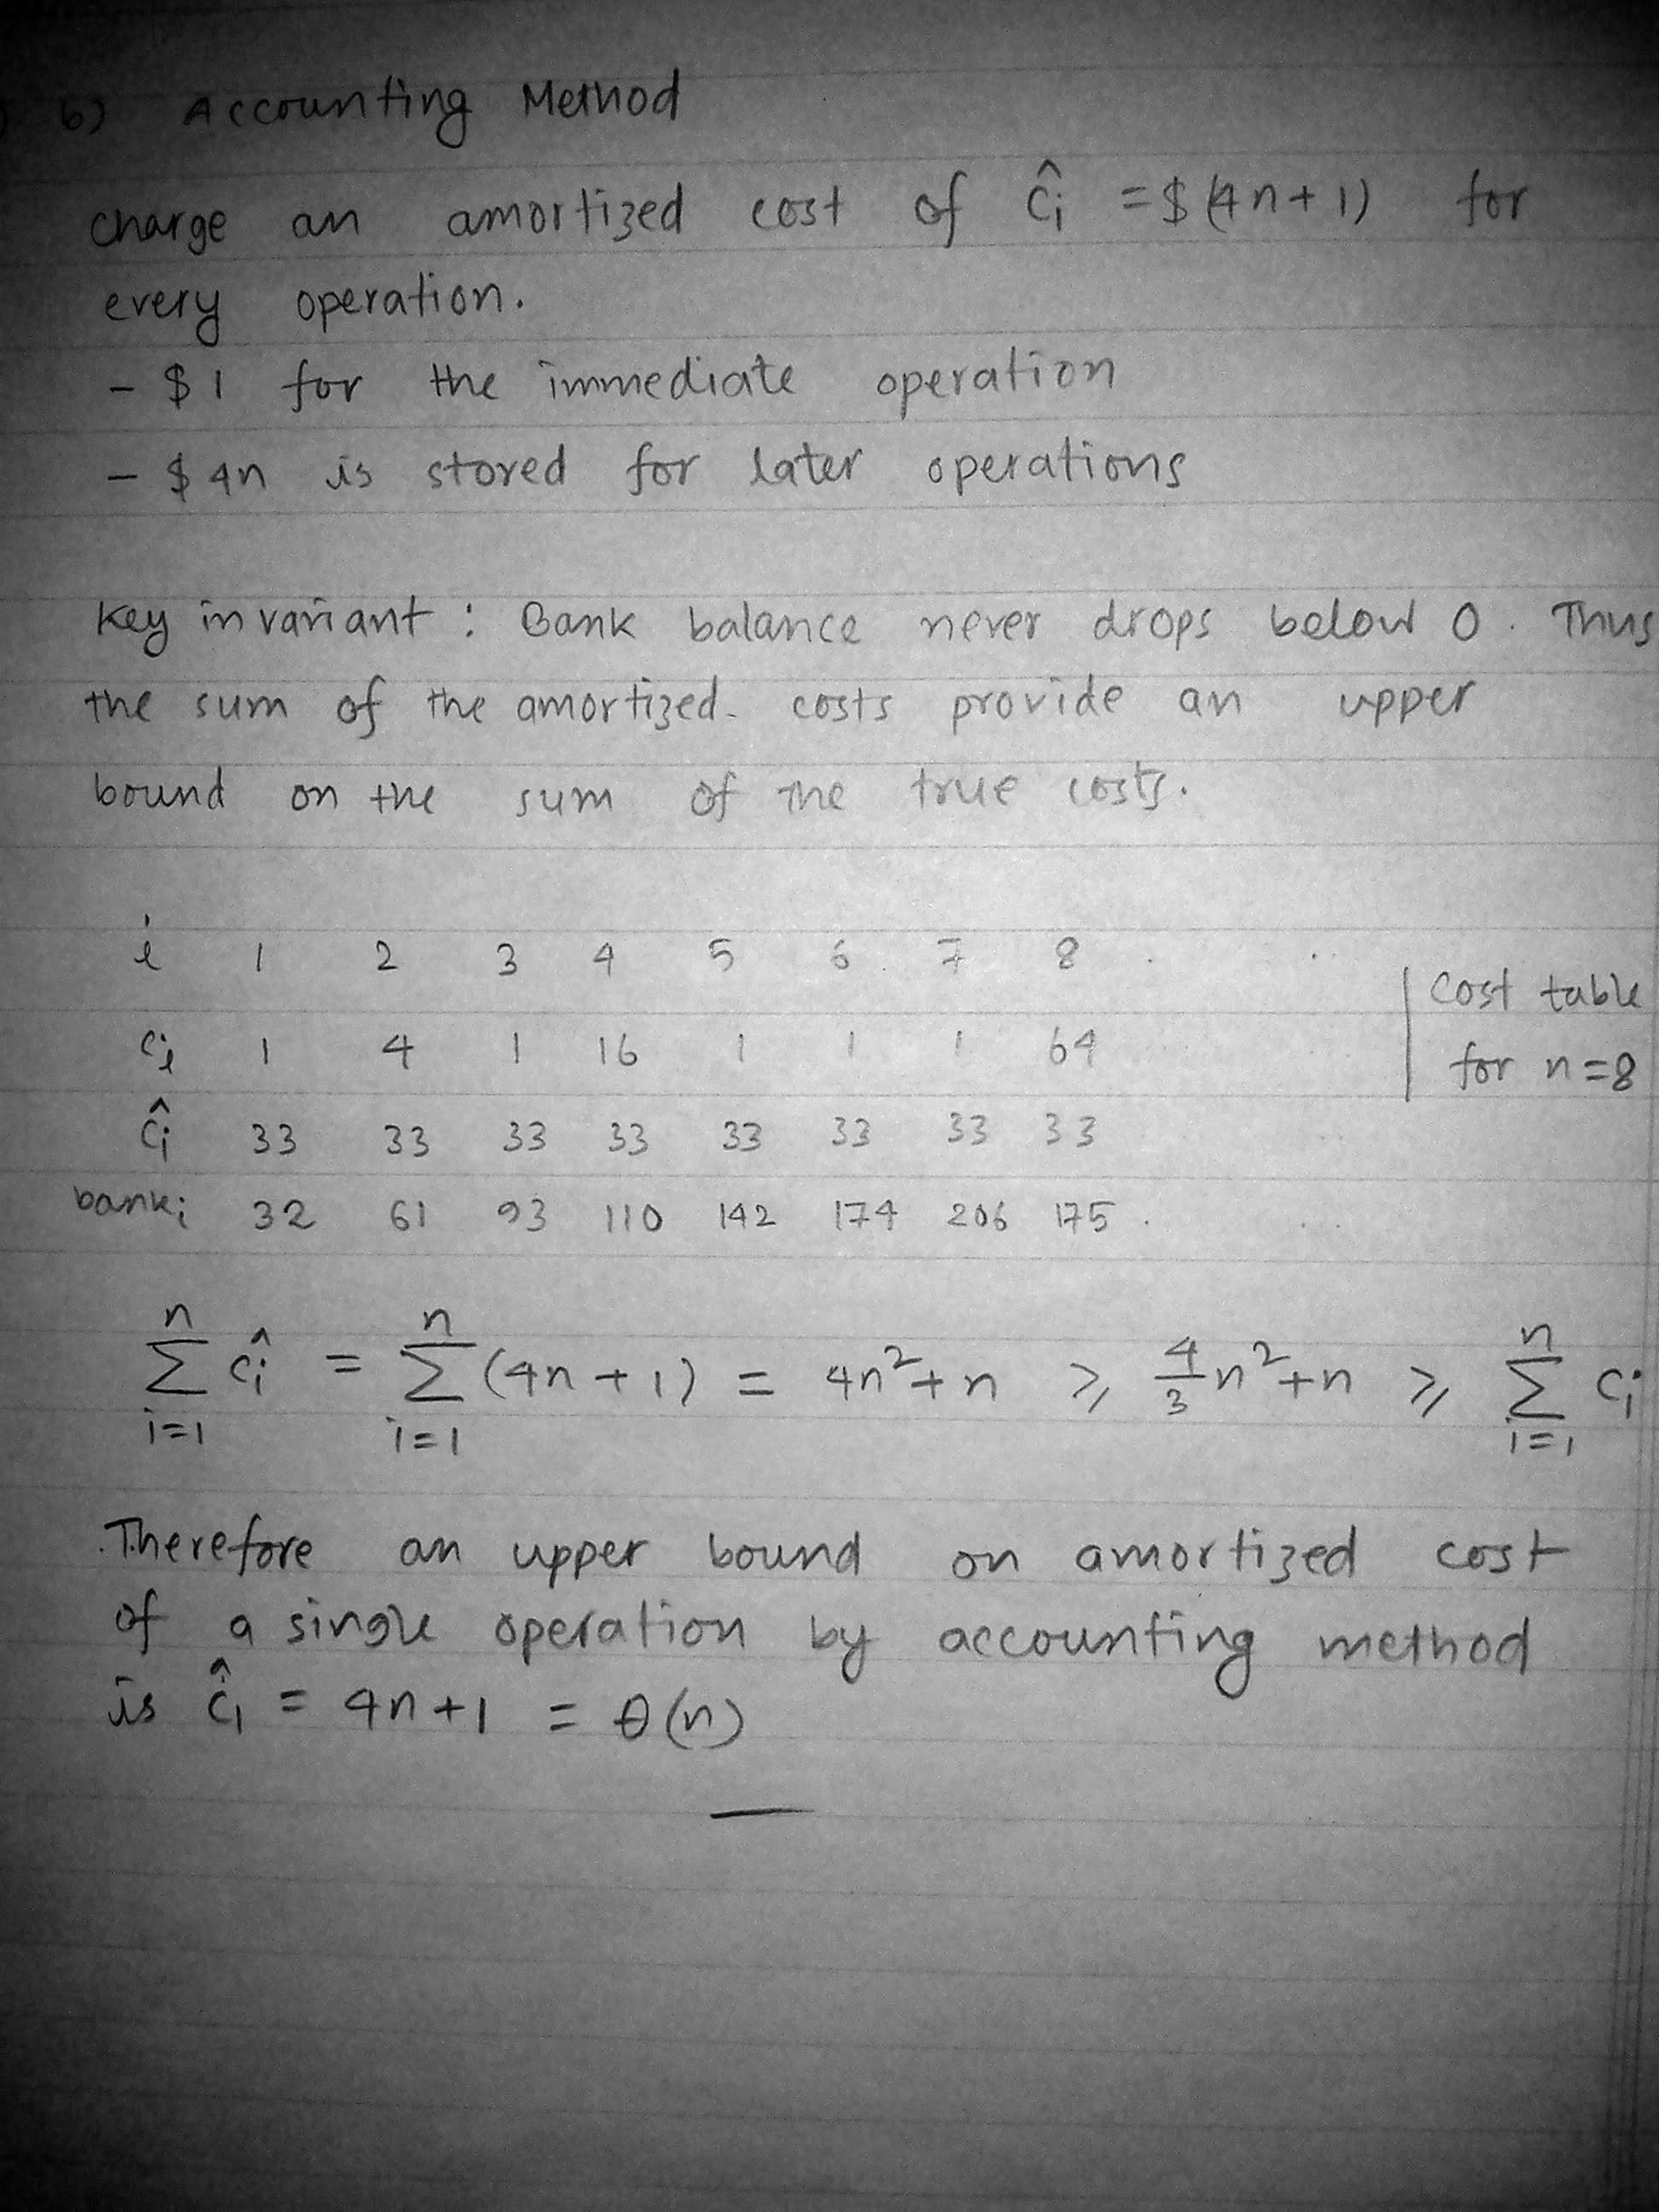 b) Accounting Method
charge an amortized cost of ĉi = $(4n+1) for
every operation.
- $1 for the immediate operation
- $4n is stored for later operations
Key invariant : Bank balance never drops below 0. Thus
the sum of the amortized costs provide an upper
bound on the sum of the true costs.
i 1 2 3 4 5 6 7 8 . . .
ci 1 4 1 16 1 1 1 64
ĉi 33 33 33 33 33 33 33 33
banki 32 61 93 110 142 174 206 175 . . .
Cost table
for n=8
n∑i=1 ĉi = n∑i=1 (4n+1) = 4n²+n ≥ 4/3 n²+n ≥ n∑i=1 ci
Therefore an upper bound on amortized cost
of a single operation by accounting method
is ĉi = 4n+1 = θ(n)